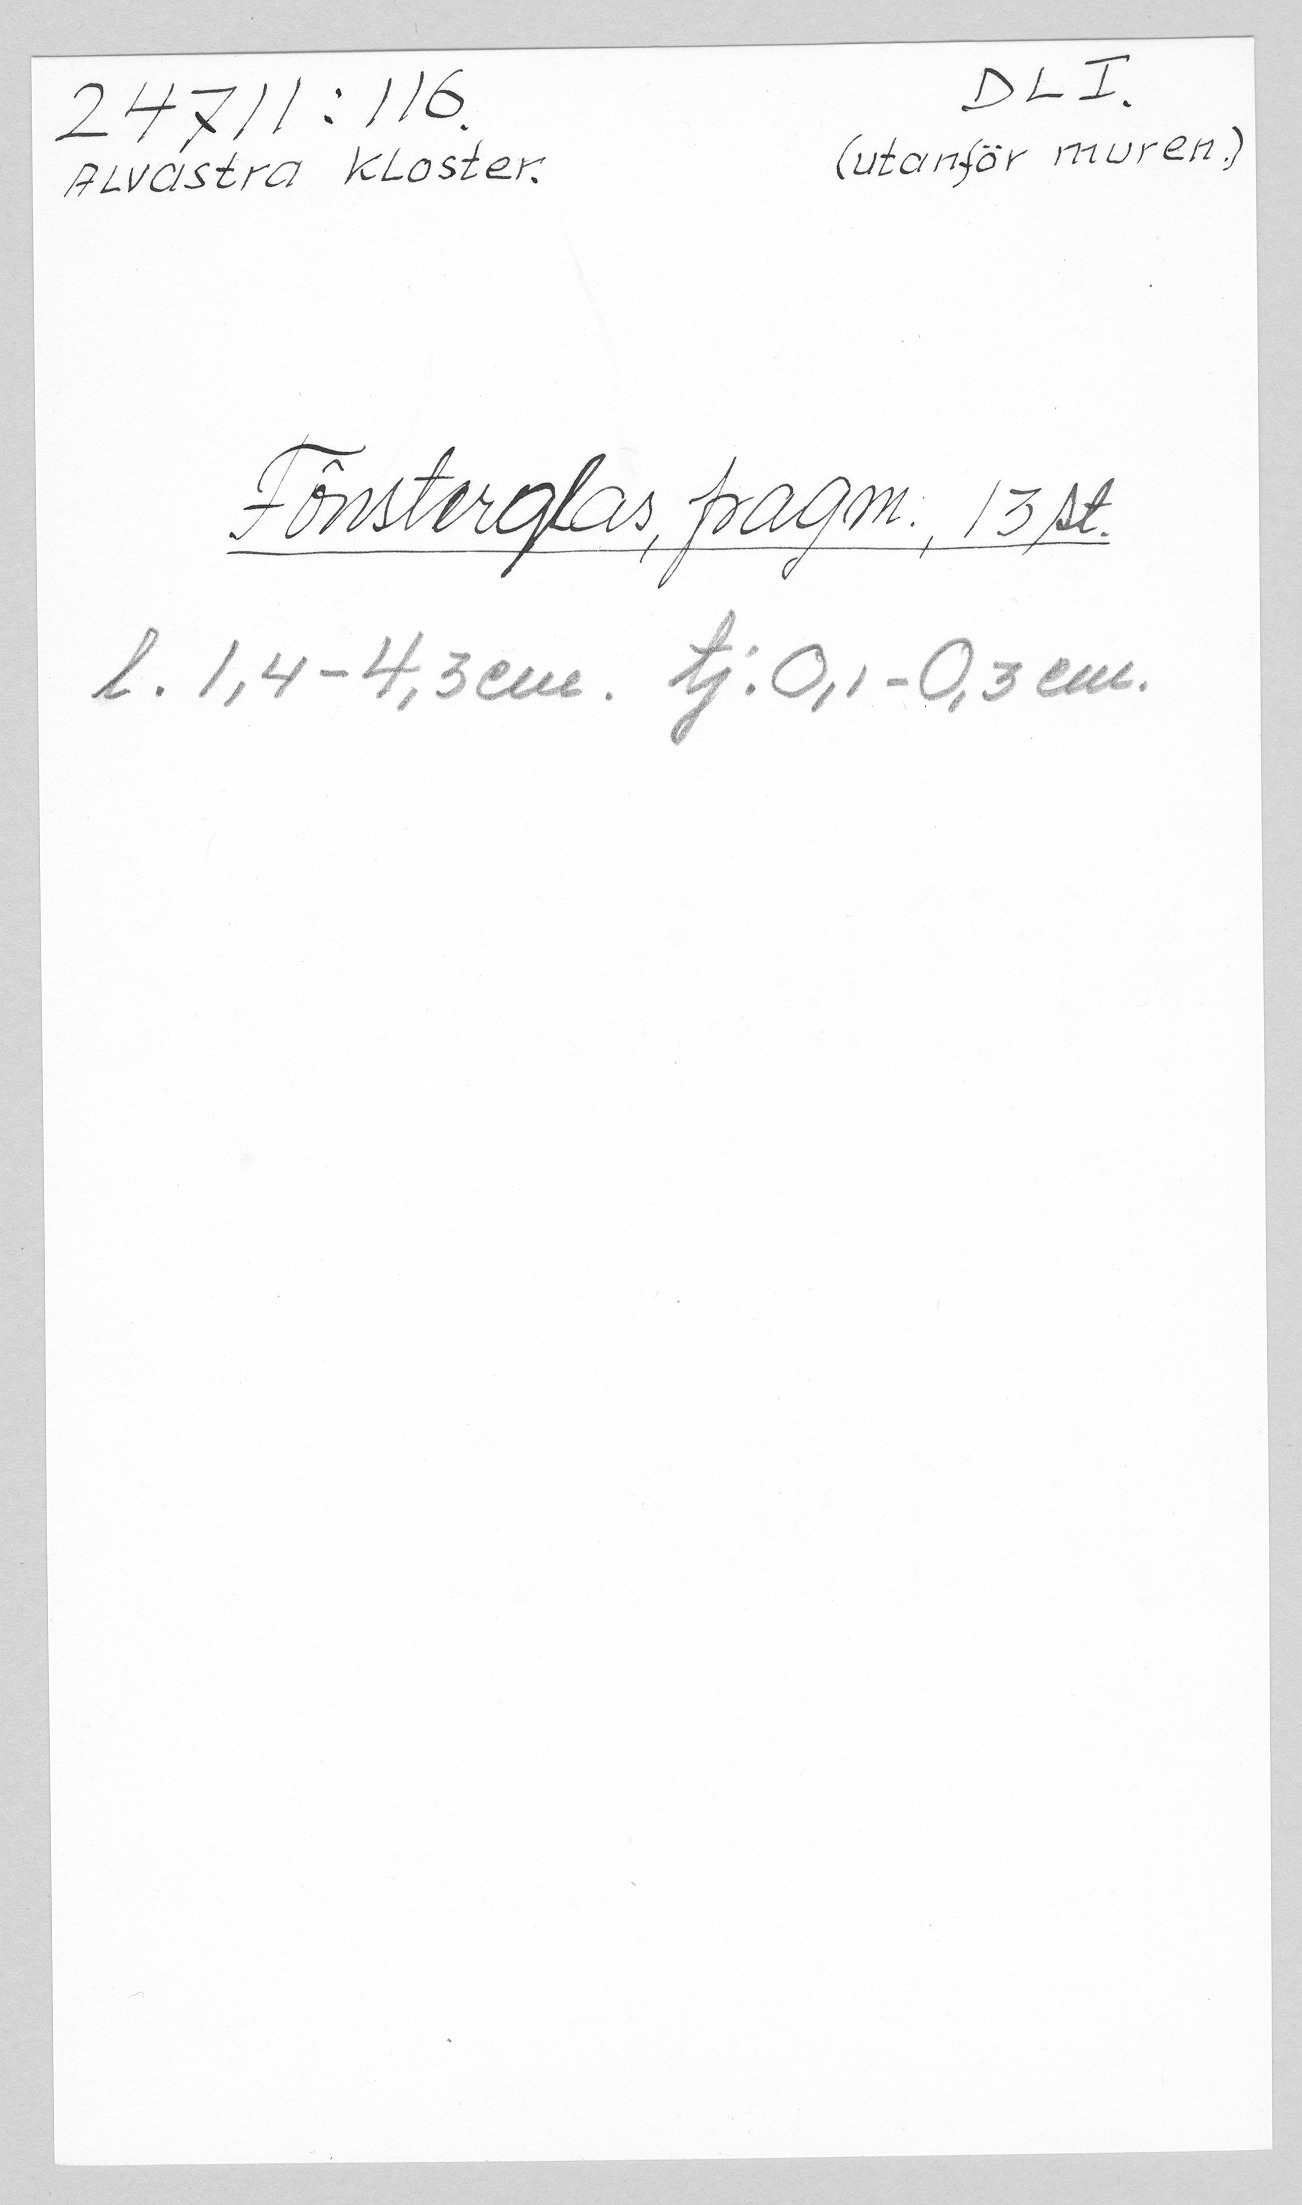 24711:116.
DLI.
Alvastra Kloster.
(utanför muren.)
Fönsterglas, fragm., 13 st.
l. 1,4-4,3 cm. tj: 0,1-0,3 cm.